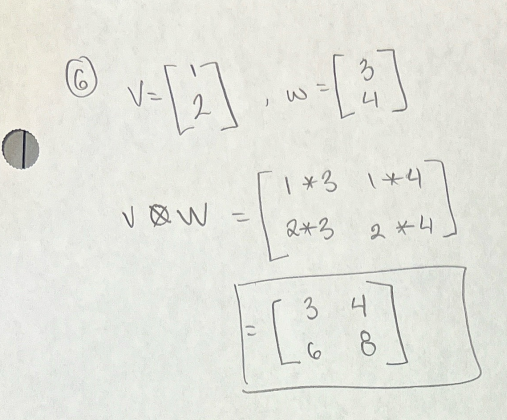 ⑥ V = [1 2], w = [3 4]
V ⊗ W = [1*3 1*4 2*3 2*4]
= [3 4 6 8]